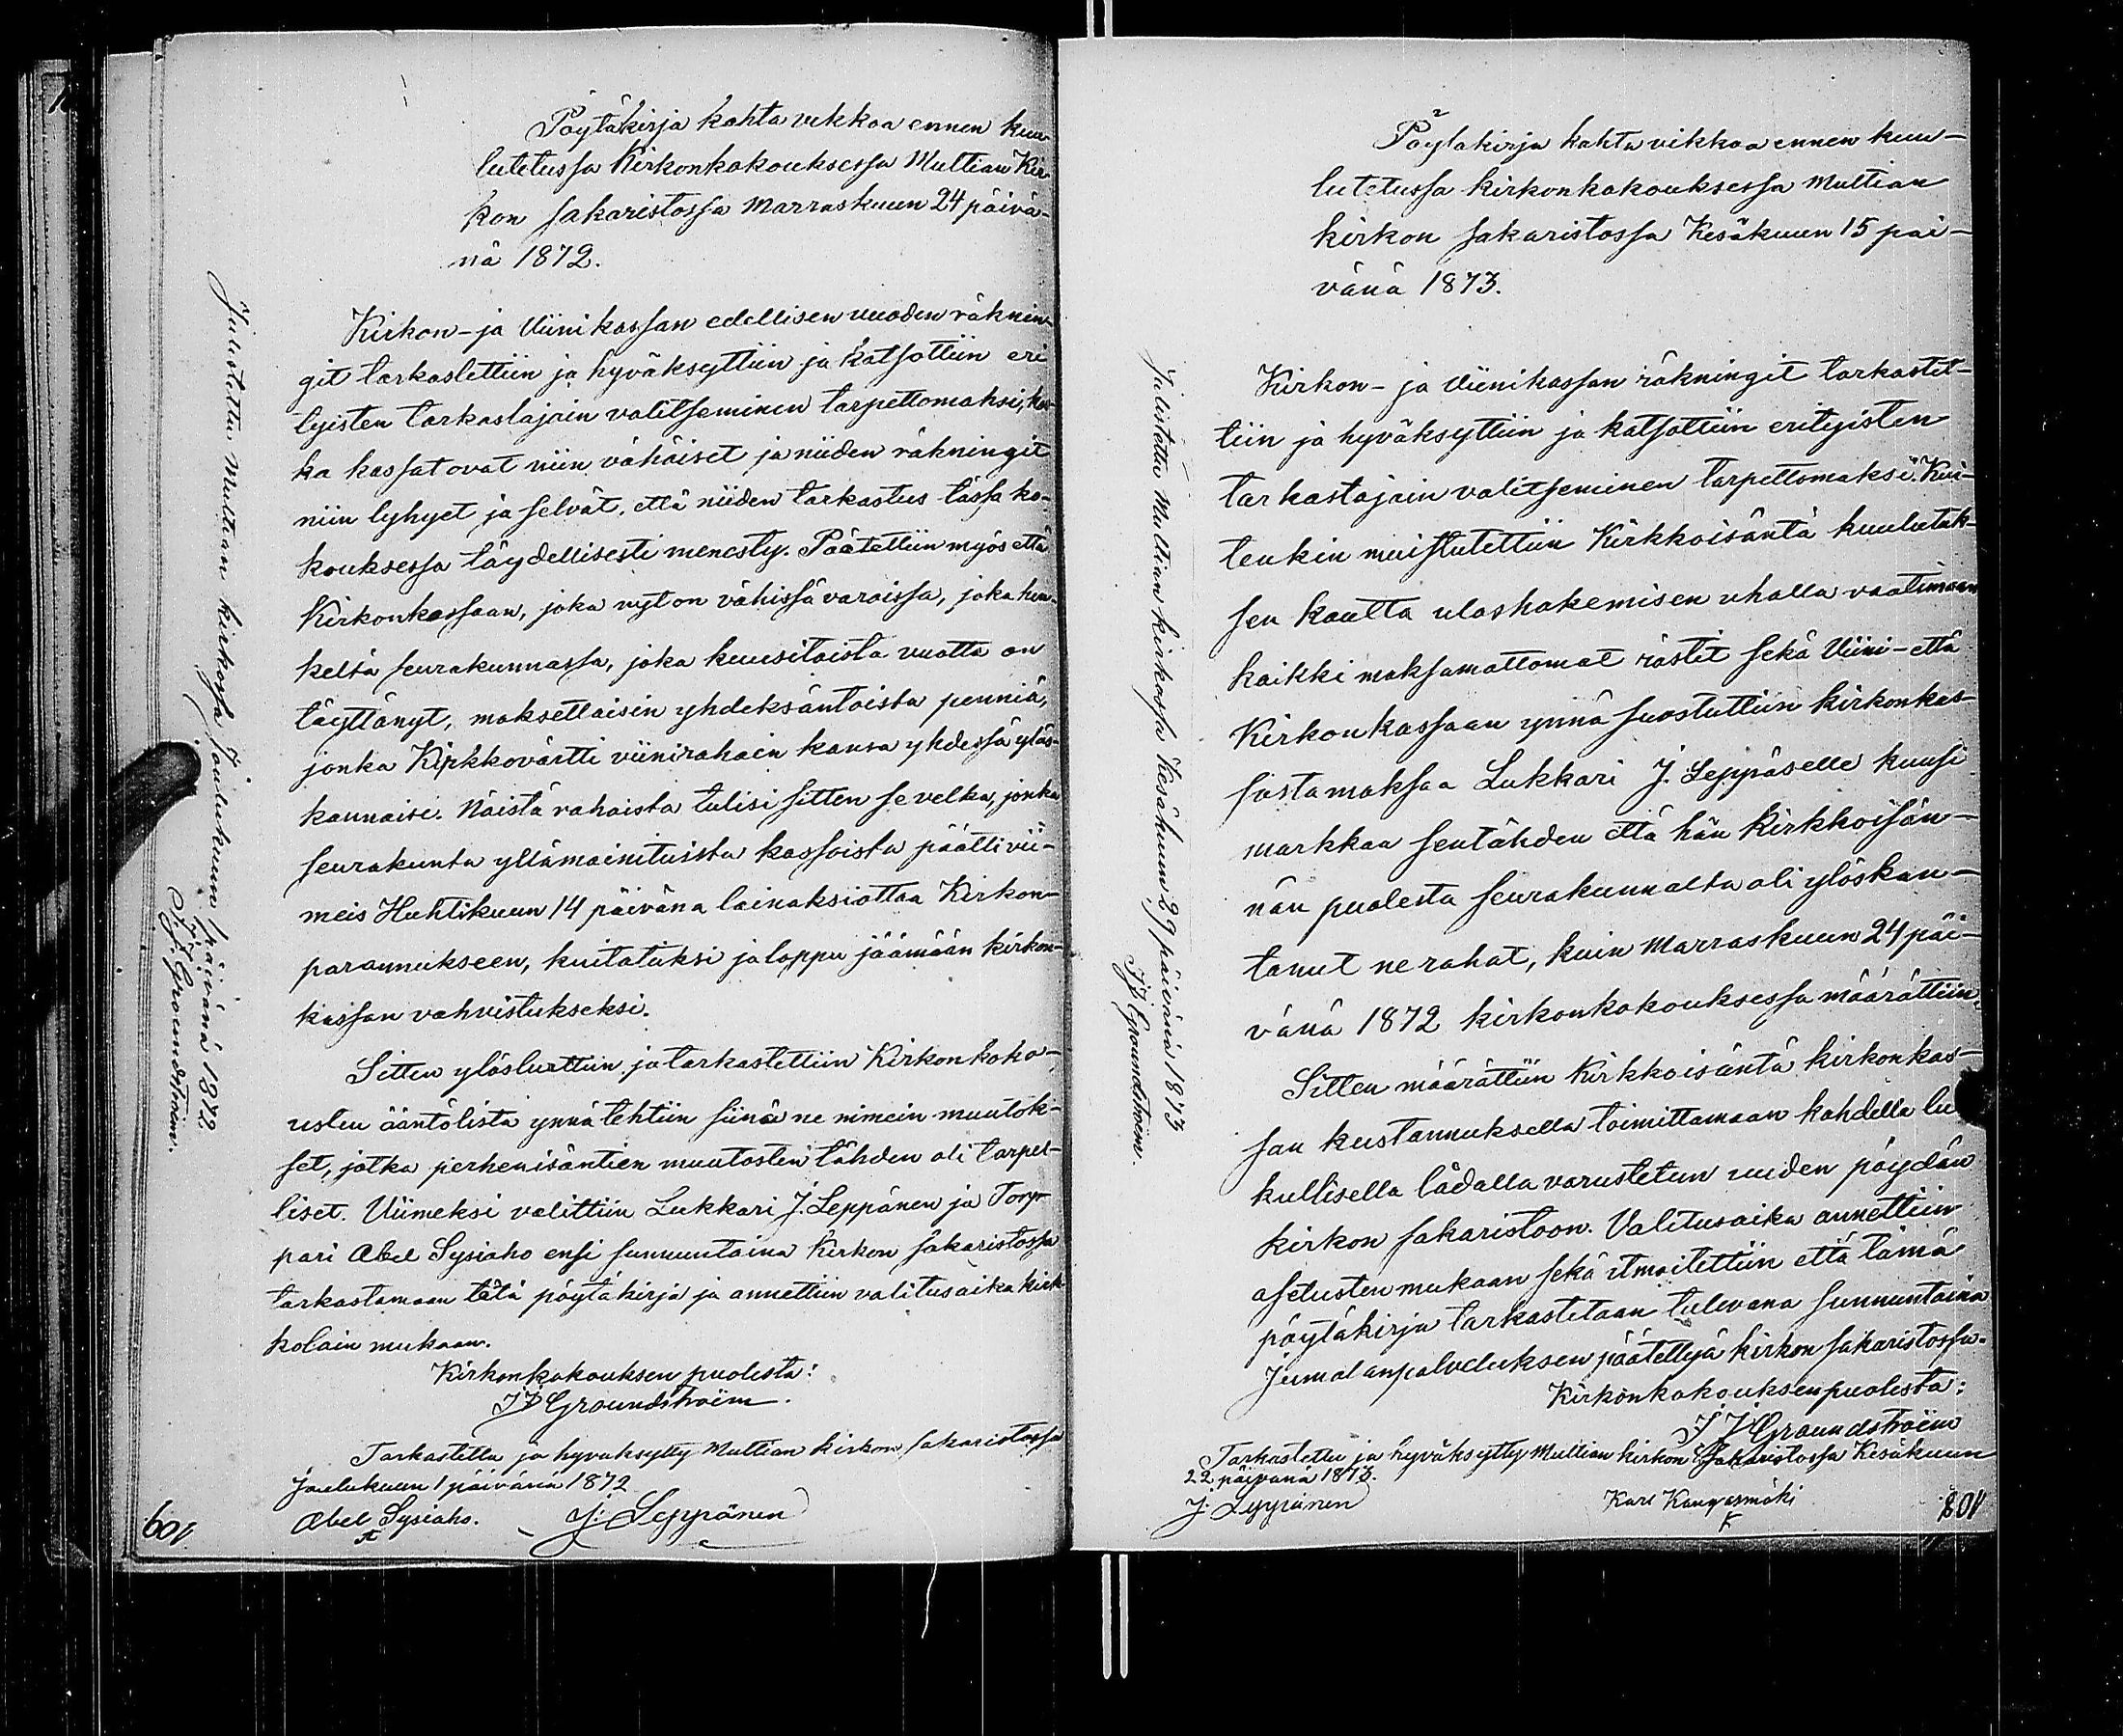 Pöytäkirja kahta vikkoa ennen kuu-
lutetussa Kirkonkokouksessa Multian Kir-
kon sakaristossa Marraskuun 24 päivä-
nä 1872.
Kirkon- ja Viinikassan edellisen vuoden räknin-
git tarkastettiin ja hyväksyttiin ja katsottiin eri-
tyisten tarkastajain valitseminen tarpettomaksi, kos-
ka kassat ovat niin vähäiset ja niiden räkningit
niin lyhyet ja selvät, että niiden tarkastus tässä ko-
kouksessa täydellisesti menesty. Päätettiin myös että
Kirkonkassaan, joka nyt on vähissä varoissa, joka hen-
keltä seurakunnassa, joka kuusitoista vuotta on
täyttänyt, maksettaisin yhdeksäntoista penniä,
jonka Kirkkovärtti viinirahain kansa yhdessä ylös-
kannaisi. Näistä rahoista tulisi sitten se velka, jonka
seurakunta yllämainituista kassoista päätti vii-
meis Huhtikuun 14 päivänä lainaksi ottaa Kirkon-
parannukseen, kuitatuksi ja loppu jäämään kirkon-
kassan vahvistukseksi.
Sitten ylösluettiin ja tarkastettiin Kirkonkoko-
usten ääntölista ynnä tehtiin siinä ne nimein muutok-
set, jotka perhenisäntien muutosten tähden oli tarpel-
liset. Viimeksi valittiin Lukkari J. Leppänen ja Torp-
pari Abel Sysiaho ensi sunnuntaina Kirkon sakaristossa
tarkastamaan tätä pöytäkirja ja annettiin valitusaika kirk-
kolain mukaan.
Kirkonkokouksen puolesta:
J J Groundstroëm.
Tarkastettu ja hyväksytty Multian kirkon sakaristossa
Joulukuun 1 päivänä 1872
Abel Sysiaho. J. Leppänen
Julistettu Multian kirkossa Joulukuun 1 päivänä 1872
J J Groundstroëm.
109
Pöytäkirja kahta vikkoa ennen kuu-
lutetussa kirkonkokouksessa Multian
kirkon sakaristossa Kesäkuun 15 päi-
vänä 1873.
Kirkon- ja Viinikassan räkningit tarkastet-
tiin ja hyväksyttiin ja katsottiin erityisten
tarkastajain valitseminen tarpettomaksi. Kui-
tenkin muistutettiin Kirkkoisäntä kuulutuk-
sen kautta uloshakemisen uhalla vaatimaan
kaikki maksamattomat rästit sekä Viini- että
Kirkonkassaan ynnä suostuttiin kirkonkas-
sasta maksaa Lukkari J. Leppäselle kuusi
markkaa sentähden että hän Kirkkoisän-
nän puolesta seurakunnalta oli ylöskan-
tanut ne rahat, kuin Marraskuun 24 päi-
vänä 1872 kirkonkokouksessa määrättiin.
Sitten määrättiin Kirkkoisäntä kirkonkas-
san kustannuksella toimittamaan kahdella lu-
kullisella lådalla varustetun uuden pöydän
kirkon sakaristoon. Valitusaika annettiin
asetusten mukaan sekä ilmoitettiin että tämä
pöytäkirja tarkastetaan tulevana sunnuntaina
Jumalanpalveluksen päätettyä kirkon sakaristossa.
Kirkonkokouksen puolesta:
J J Groundstroëm
Tarkastettu ja hyväksytty Multian kirkon Sakaristossa Kesäkuun
22 päivänä 1873.
J. Leppänen Karl Kangasmäki
Julistettu Multian kirkossa Kesäkuun 29 päivänä 1873
J J Groundstroëm.
108